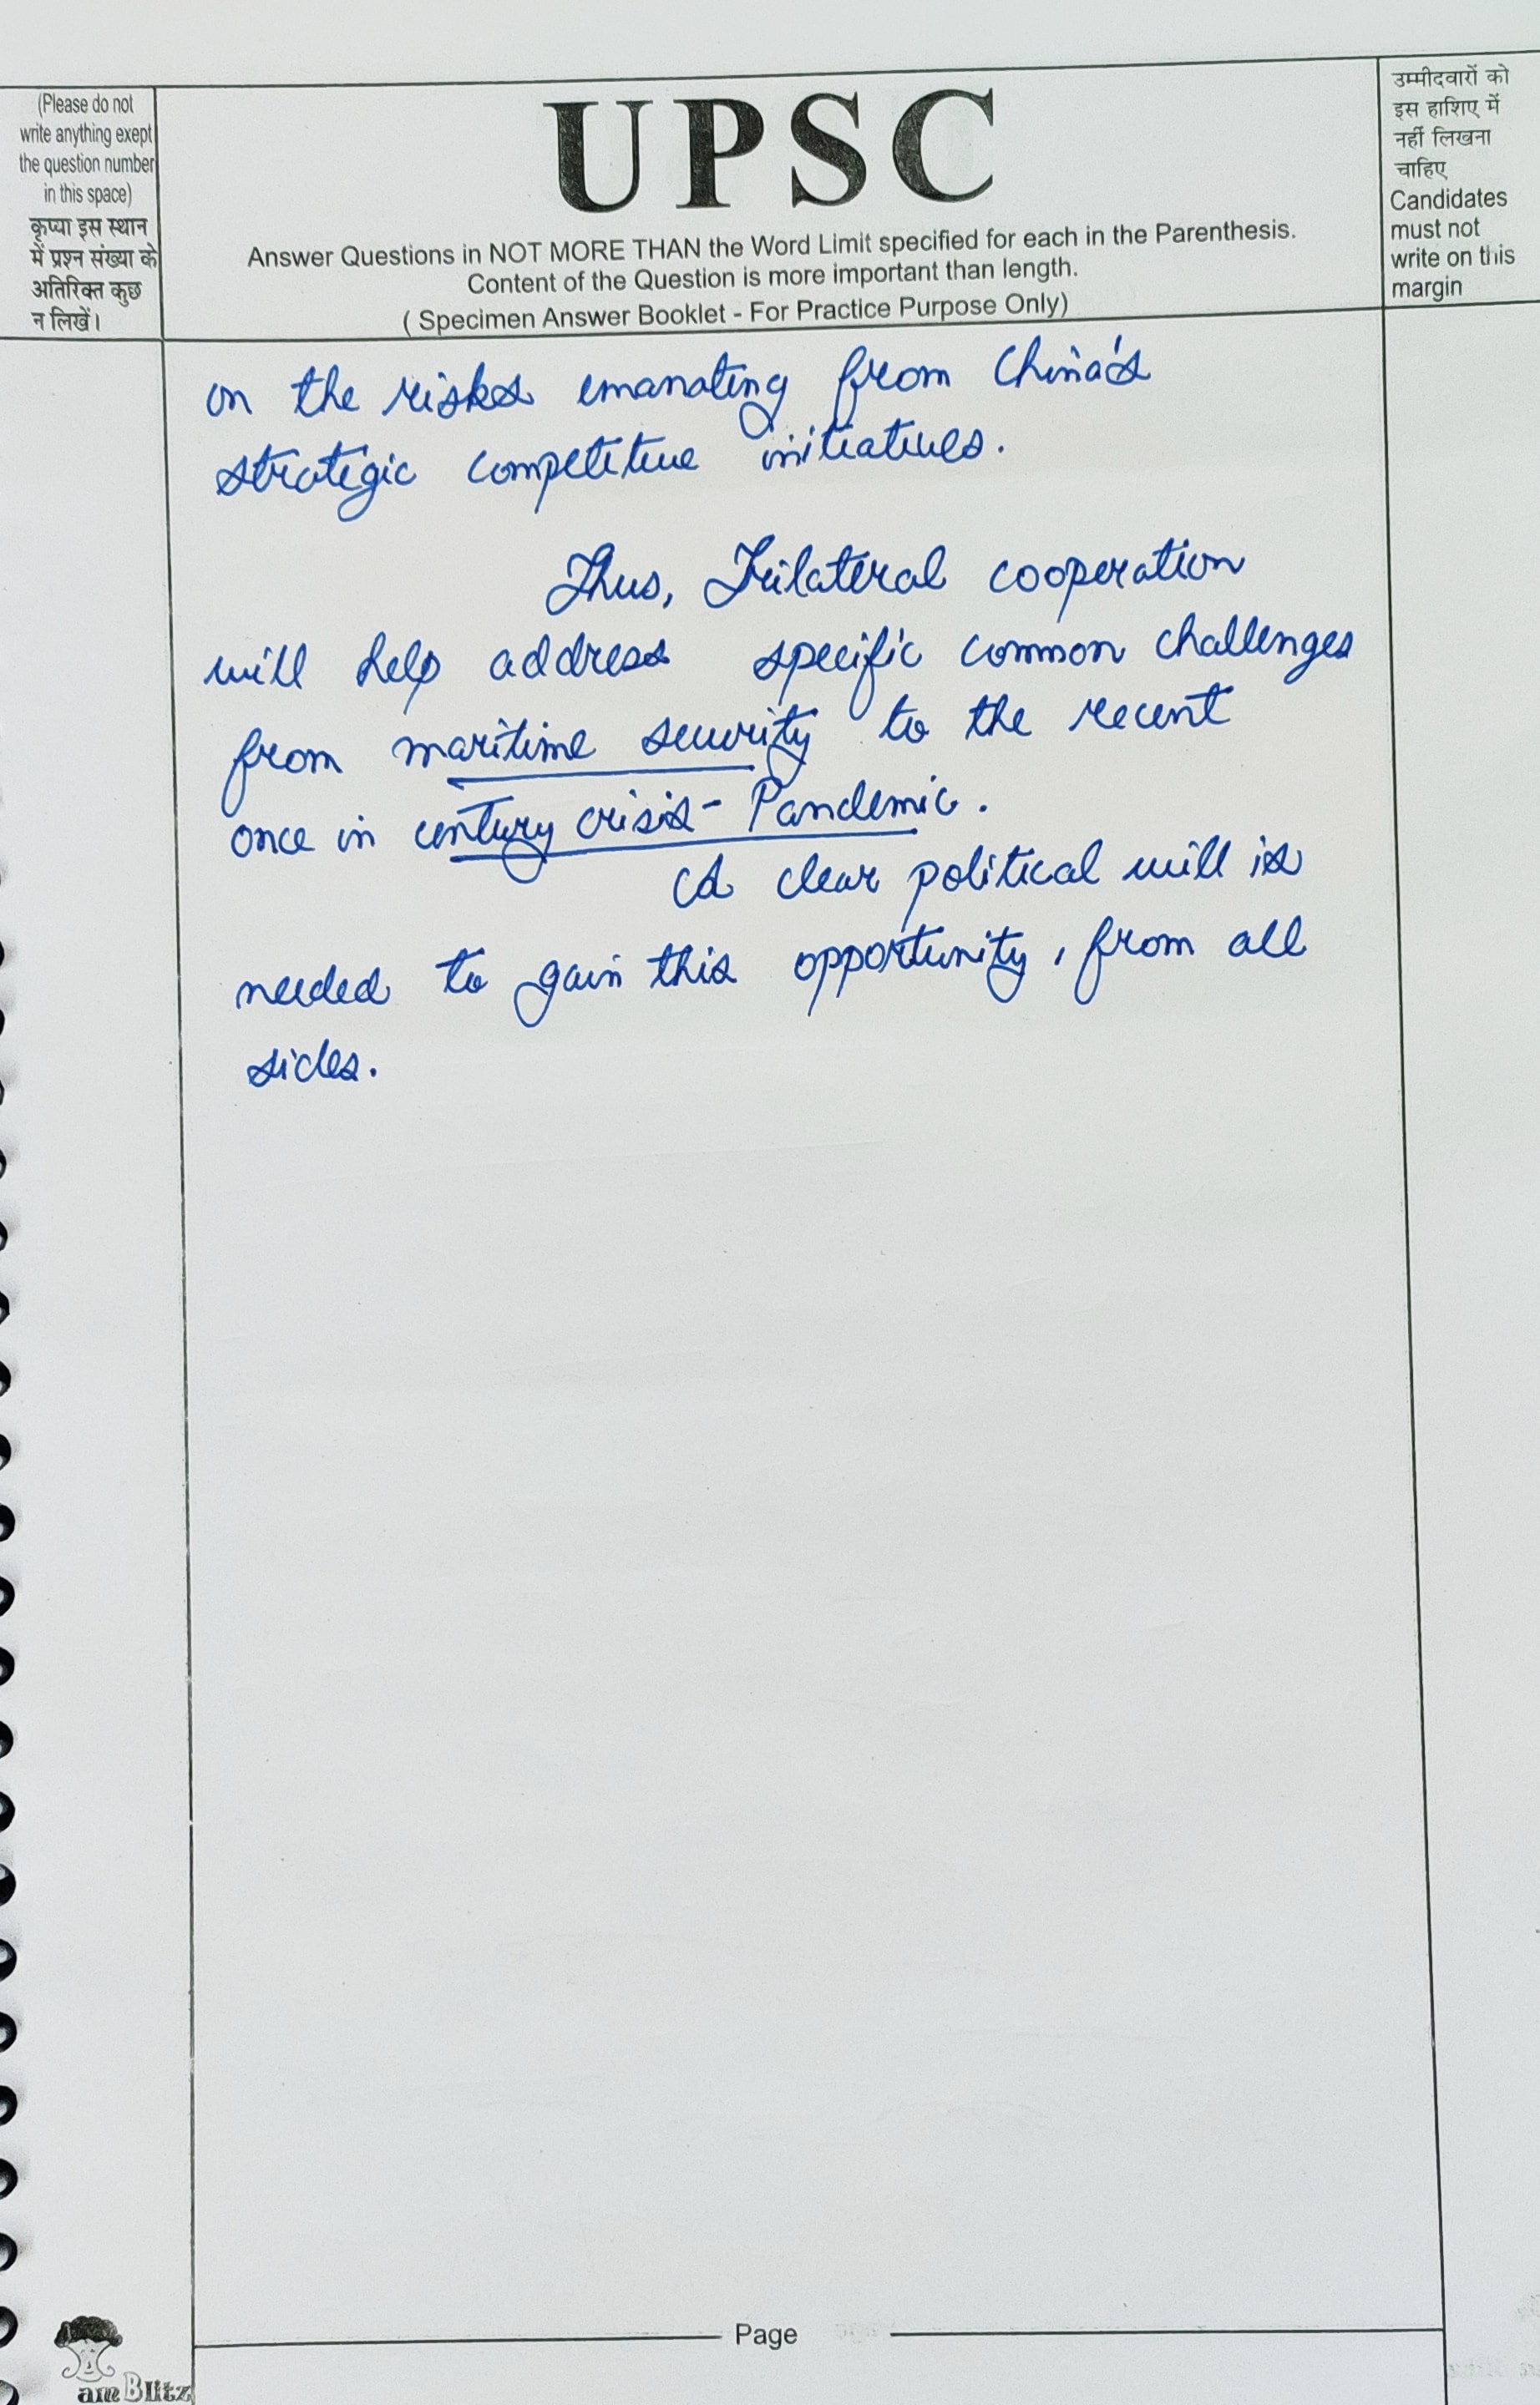 (Please do not
write anything exept
the question number
in this space)
कृप्या इस स्थान
में प्रश्न संख्या के
अतिरिक्त कुछ
न लिखें।
UPSC
Answer Questions in NOT MORE THAN the Word Limit specified for each in the Parenthesis.
Content of the Question is more important than length.
( Specimen Answer Booklet - For Practice Purpose Only)
उम्मीदवारों को
इस हाशिए में
नहीं लिखना
चाहिए
Candidates
must not
write on this
margin
on the risks emanating from China's
strategic competitive initiatives.
Thus, Trilateral cooperation
will help address specific common challenges
from maritime security to the recent
once in century crisis- Pandemic.
A clear political will is
needed to gain this opportunity, from all
sides.
Page
am Blitz